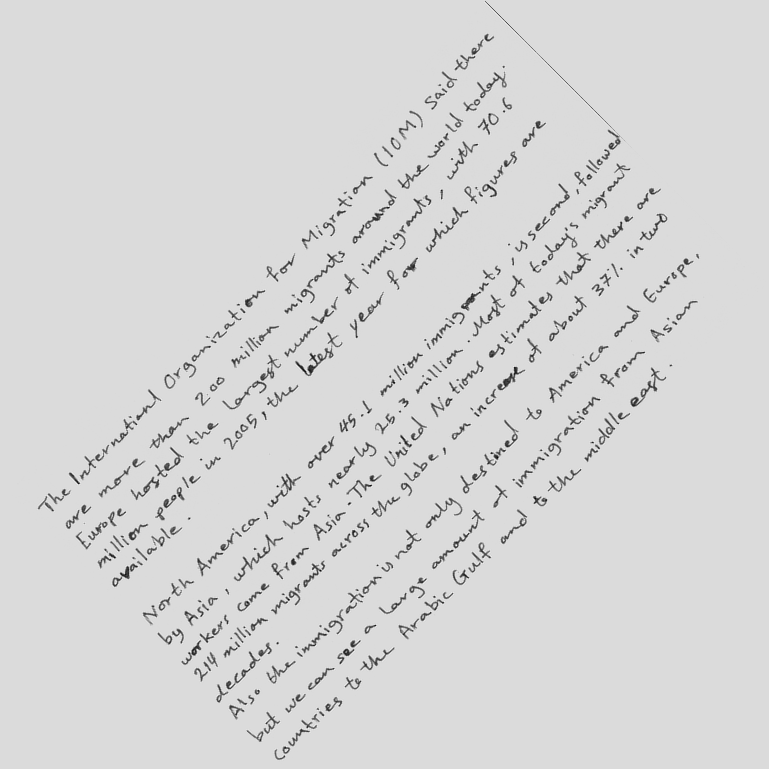 The Internationl Organization for Migration (IOM) said there
are more than 200 million migrants around the world today.
Europe hosted the largest number of immigrants, with 70.6
million people in 2005, the latest year for which figures are
available.
North America, with over 45.1 million immigrants, is second, followed
by Asia, which hosts nearly 25.3 million. Most of today's migrant
workers come from Asia. The United Nations estimates that there are
214 million migrants across the globe, an increase of about 37% in two
decades.
Also the immigration is not only destined to America and Europe,
but we can see a large amount of immigration from Asian
countries to the Arabic Gulf and to the middle east.